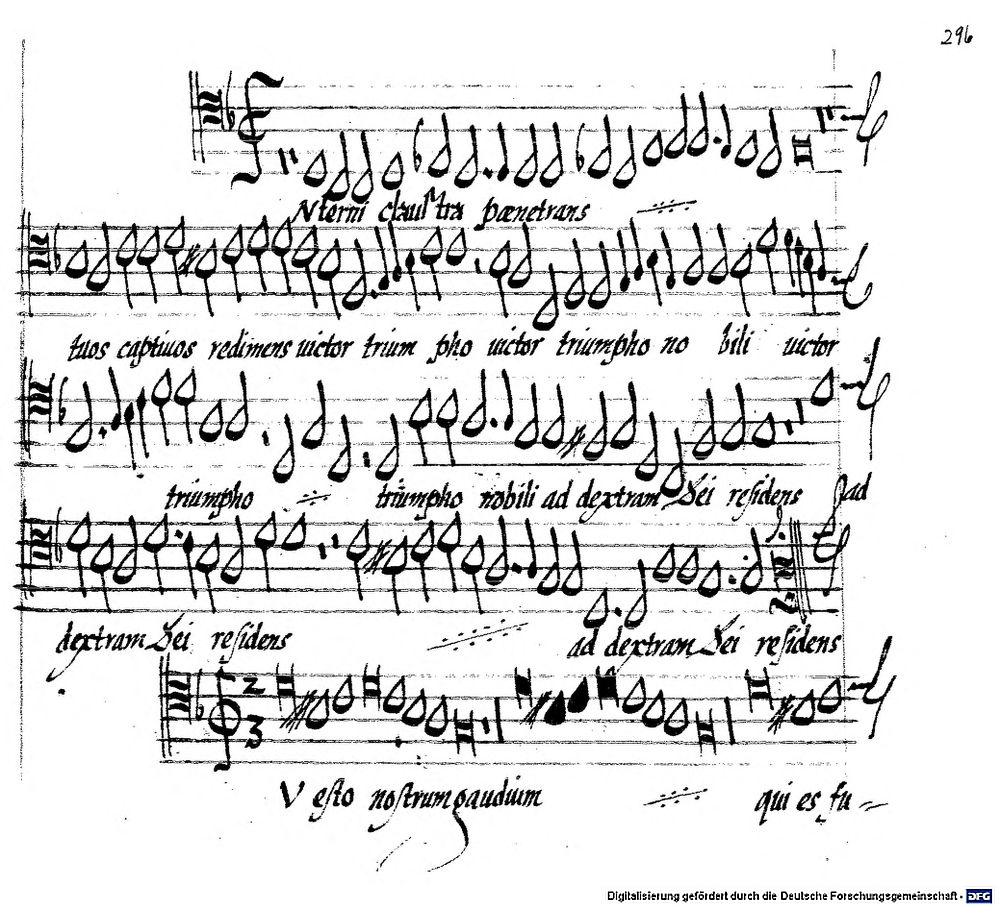 296
Nferni clauſtra pænetrans
tuos captiuos redimens uictor trium pho uictor triumpho no bili uictor
triumpho triumpho nobili ad dextram Dei reſidens ad
dextram Dei reſidens ad dextram Dei reſidens
2
3
V eſto noſtrum gaudium qui es fu
Digitalisierung gefördert durch die Deutsche Forschungsgemeinschaft - DFG